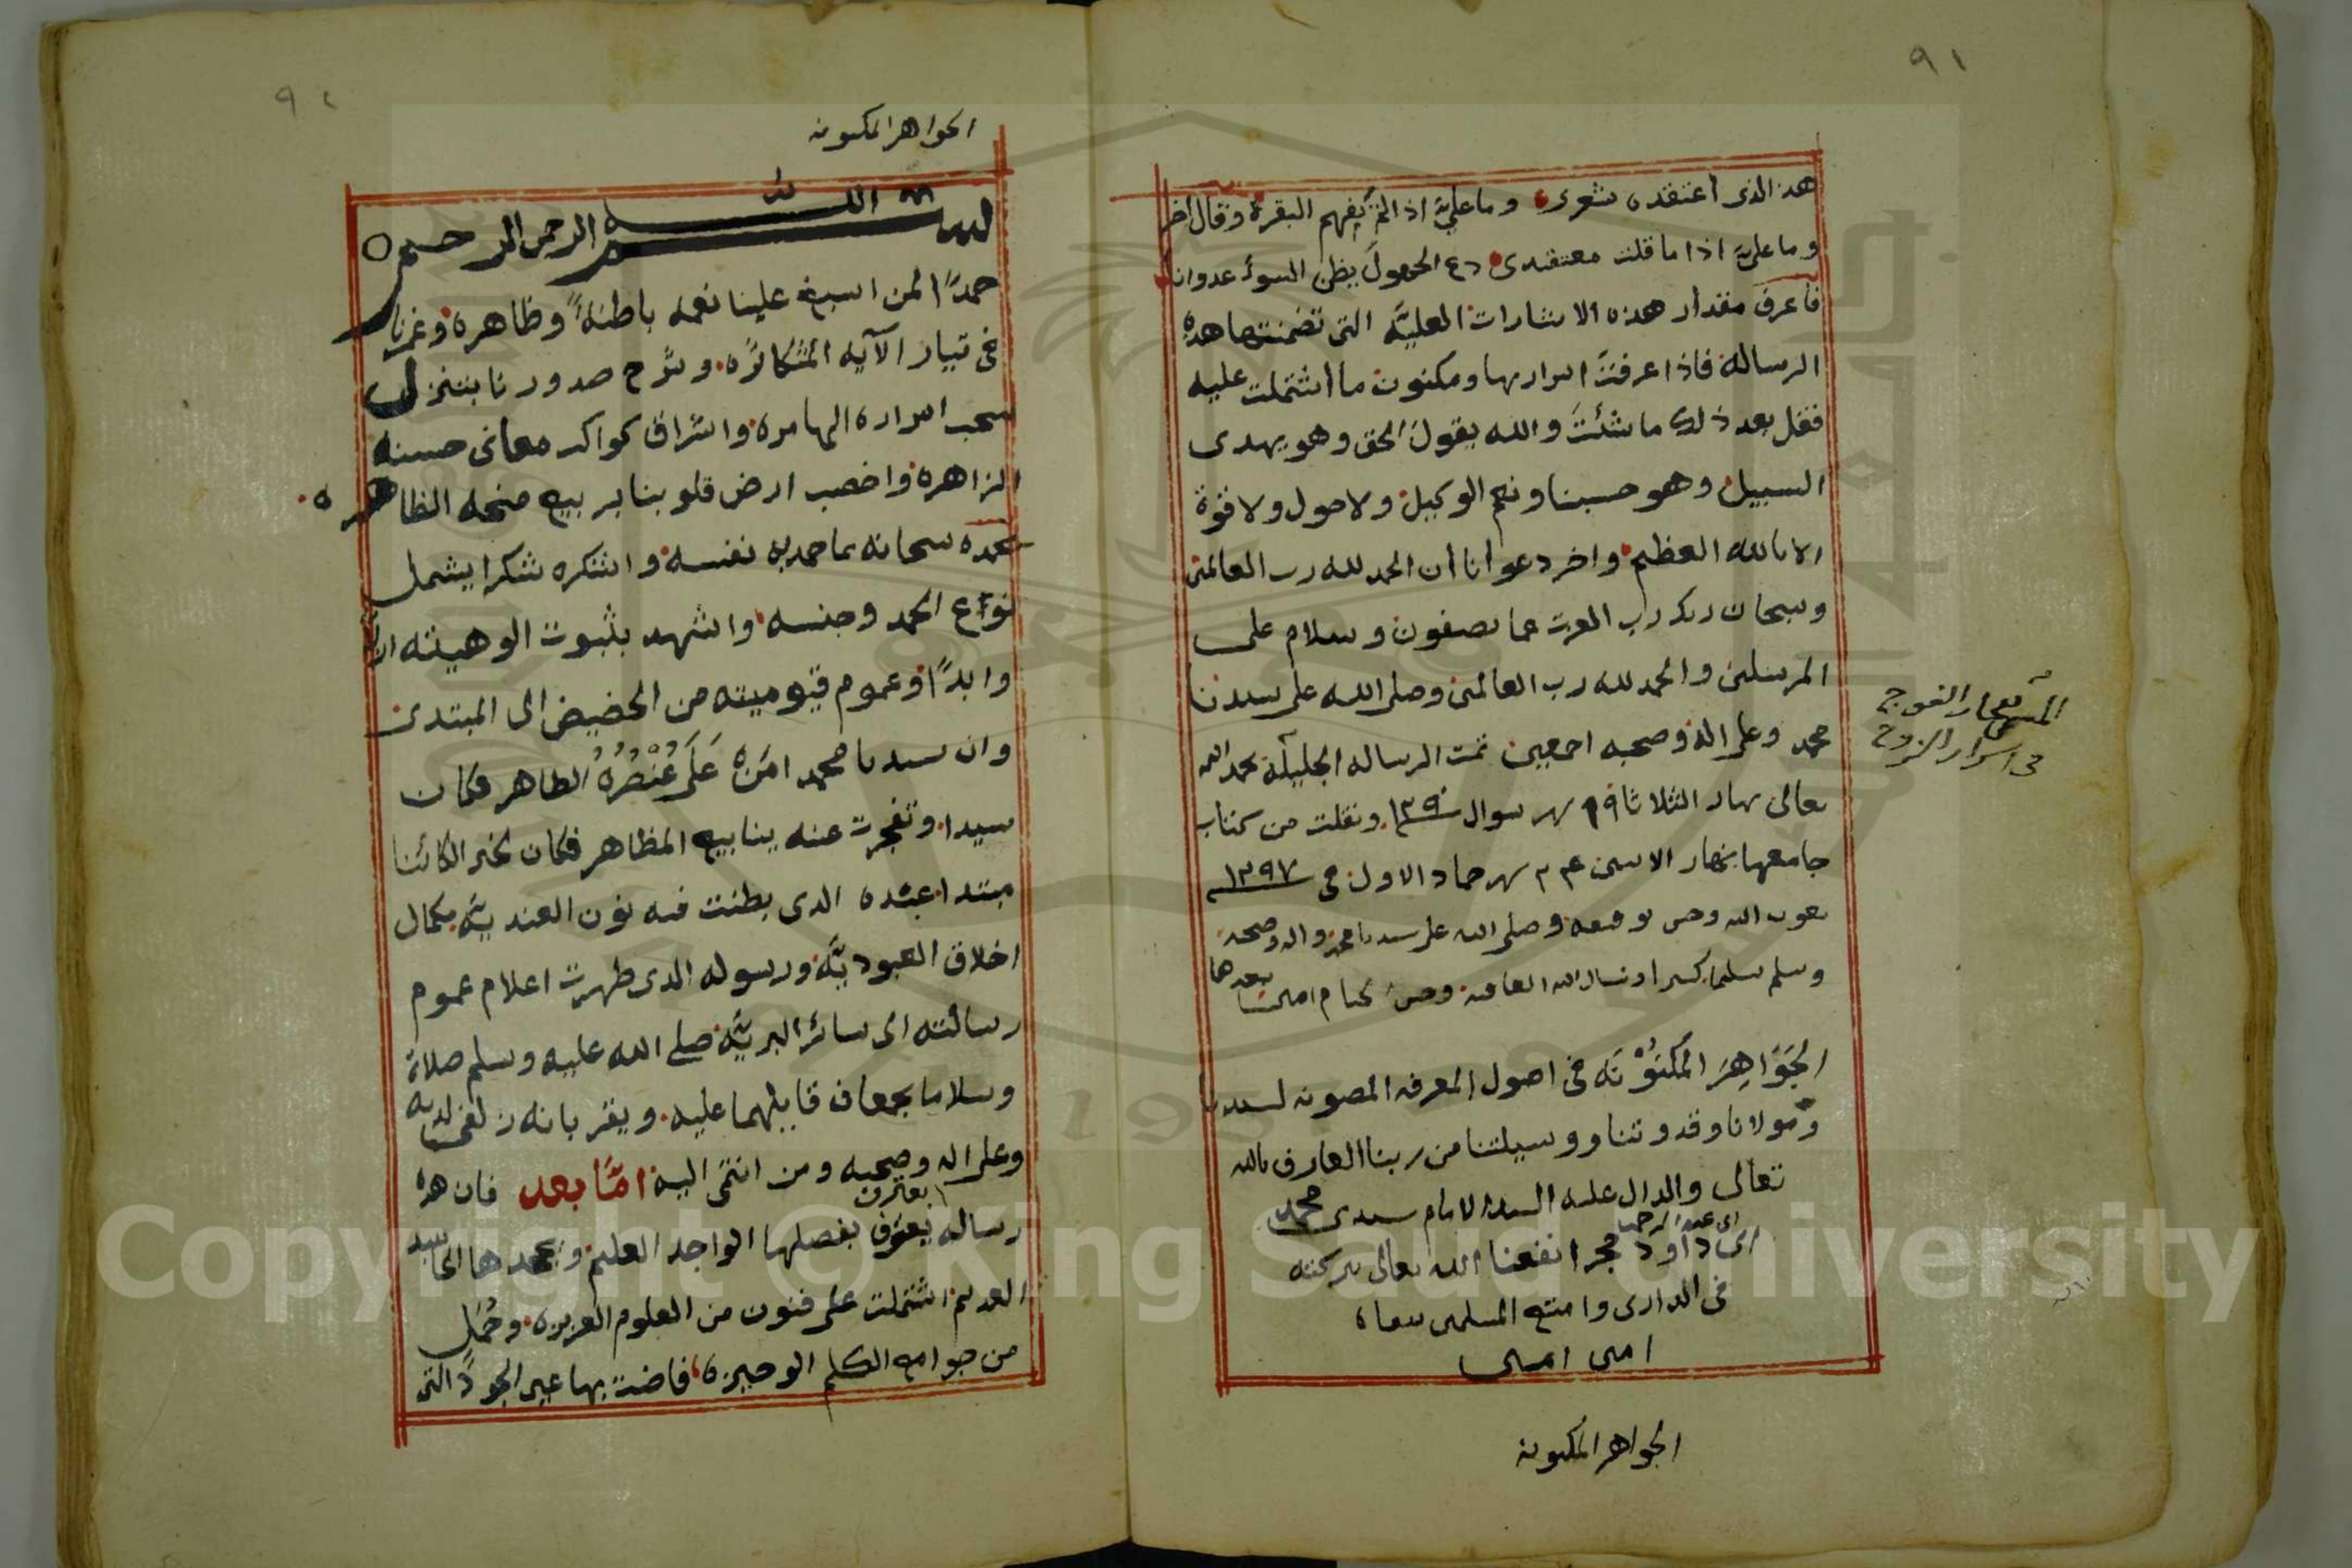 ٩١
هذا الذى اعتقده شعرى وما علىّ اذا لم يفهم البقرة وقال اخر
وما علىّ اذا ما قلت معتقدى دع الجهول يظن السوء عدوانا
فاعرف مقدار هذه الاشارات العليّه التى تضمنتها هذه
الرساله فاذا عرفتَ اسرارها ومكنون ما اشتملت عليه
فقل بعد ذلك ما شئتَ والله يقول الحق وهو يهدى
السبيل وهو حسبنا ونعم الوكيل ولا حول ولا قوة
الا بالله العظيم واخر دعوانا ان الحمد لله رب العالمين
وسبحان ربك رب العزت عما يصفون وسلام على
المرسلين والحمد لله رب العالمين وصلى الله على سيدنا
محمد وعلى اله وصحبه اجمعين تمت الرساله الجليله بحمد الله
تعالى نهار الثلاثا ١٩ شهر شوال ونقلت من كتاب
جامعها نهار الاسين شهر جماد الاول فى ١٢٩٧
بعون الله وحسن توفيقه وصلى الله على سيدنا محمد واله وصحبه
وسلم تسليما كثيرا ونسال الله العافيه وحسن الختام امين
بعدها
الجَوَاهِرَ المَكنُوْنَه فى اصول المعرفه المصونه لسيدنا
ومولانا وقدوتنا ووسيلتنا من ربنا العارف بالله
تعالى والدال عليه السيد الامام سيدى محمد
ابن عبد الرحمن
ابى داود حجر انفعنا الله تعالى ببركته
فى الدارين وامتع المسلمين
امين امين
الجواهر المكنونه
فى اسرار الزوج
٩٢
الجواهر المكنونه
بسم الله الرحمن الرحيم
حمدًا لمن اسبغ علينا نعمه باطنهً وظاهره وغمرنا
فى تيار الآيه المتكاثره وشرح صدورنا بتنزل
سحب اسراره الهامره واشراق كواكب معانى حسنه
الزاهره واخصب ارض قلوبنا بربيع منحه الظاهره
نحمده سبحانه بما حمد به نفسه واشكره شكرا يشمل
انواع الحمد وجنسه واشهد بثبوت الوهيته ازلًا
وابدًا وعموم قيوميته من الحضيض الى المبتدى
وان سيدنا محمد امَرَهُ عَلَى عُنْصُرُهُ الطاهر فكان
سيدا وتفجرت عنه ينابيع المظاهر فكان لخبر الكائنا
مبتدا عبده الذى بطنت فيه نون العنديّه بكمال
اخلاق العبوديَّه ورسوله الذى ظهرت اعلام عموم
رسالته الى سائر البريَّه صلى الله عليه وسلم صلاة
وسلاما يجمعان قابلهما عليه ويقربانه زلفى لديه
وعلى اله وصحبه ومن انتمى اليه امّا بعد فان هذه
يعترف
رساله يعترف بفضلها الواجد العليم ويجحدها الحاسد
العديم اشتملت على فنون من العلوم العزيزه وجُمَلٍ
من جوامع الكلم الوجيزه فاضت بها عين الجود التى
Copyright © King Saud University